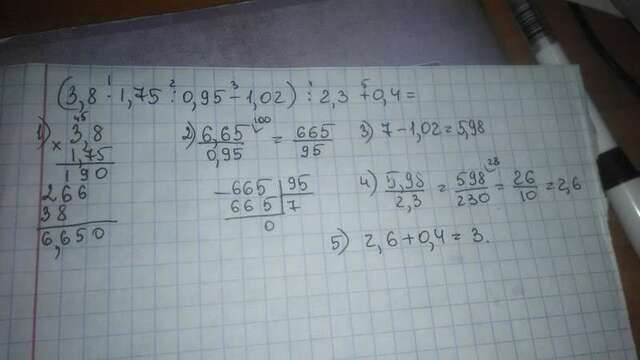 (3,8 · 1,75 : 0,95 - 1,02) : 2,3 + 0,4 =
1) 3,8
× 1,75
190
266
38
6,650
2) 6,65 / 0,95 = 665 / 95
100
665 | 95
665 | 7
0
3) 7 - 1,02 = 5,98
4) 5,98 / 2,3 = 598 / 230 = 26 / 10 = 2,6
5) 2,6 + 0,4 = 3.